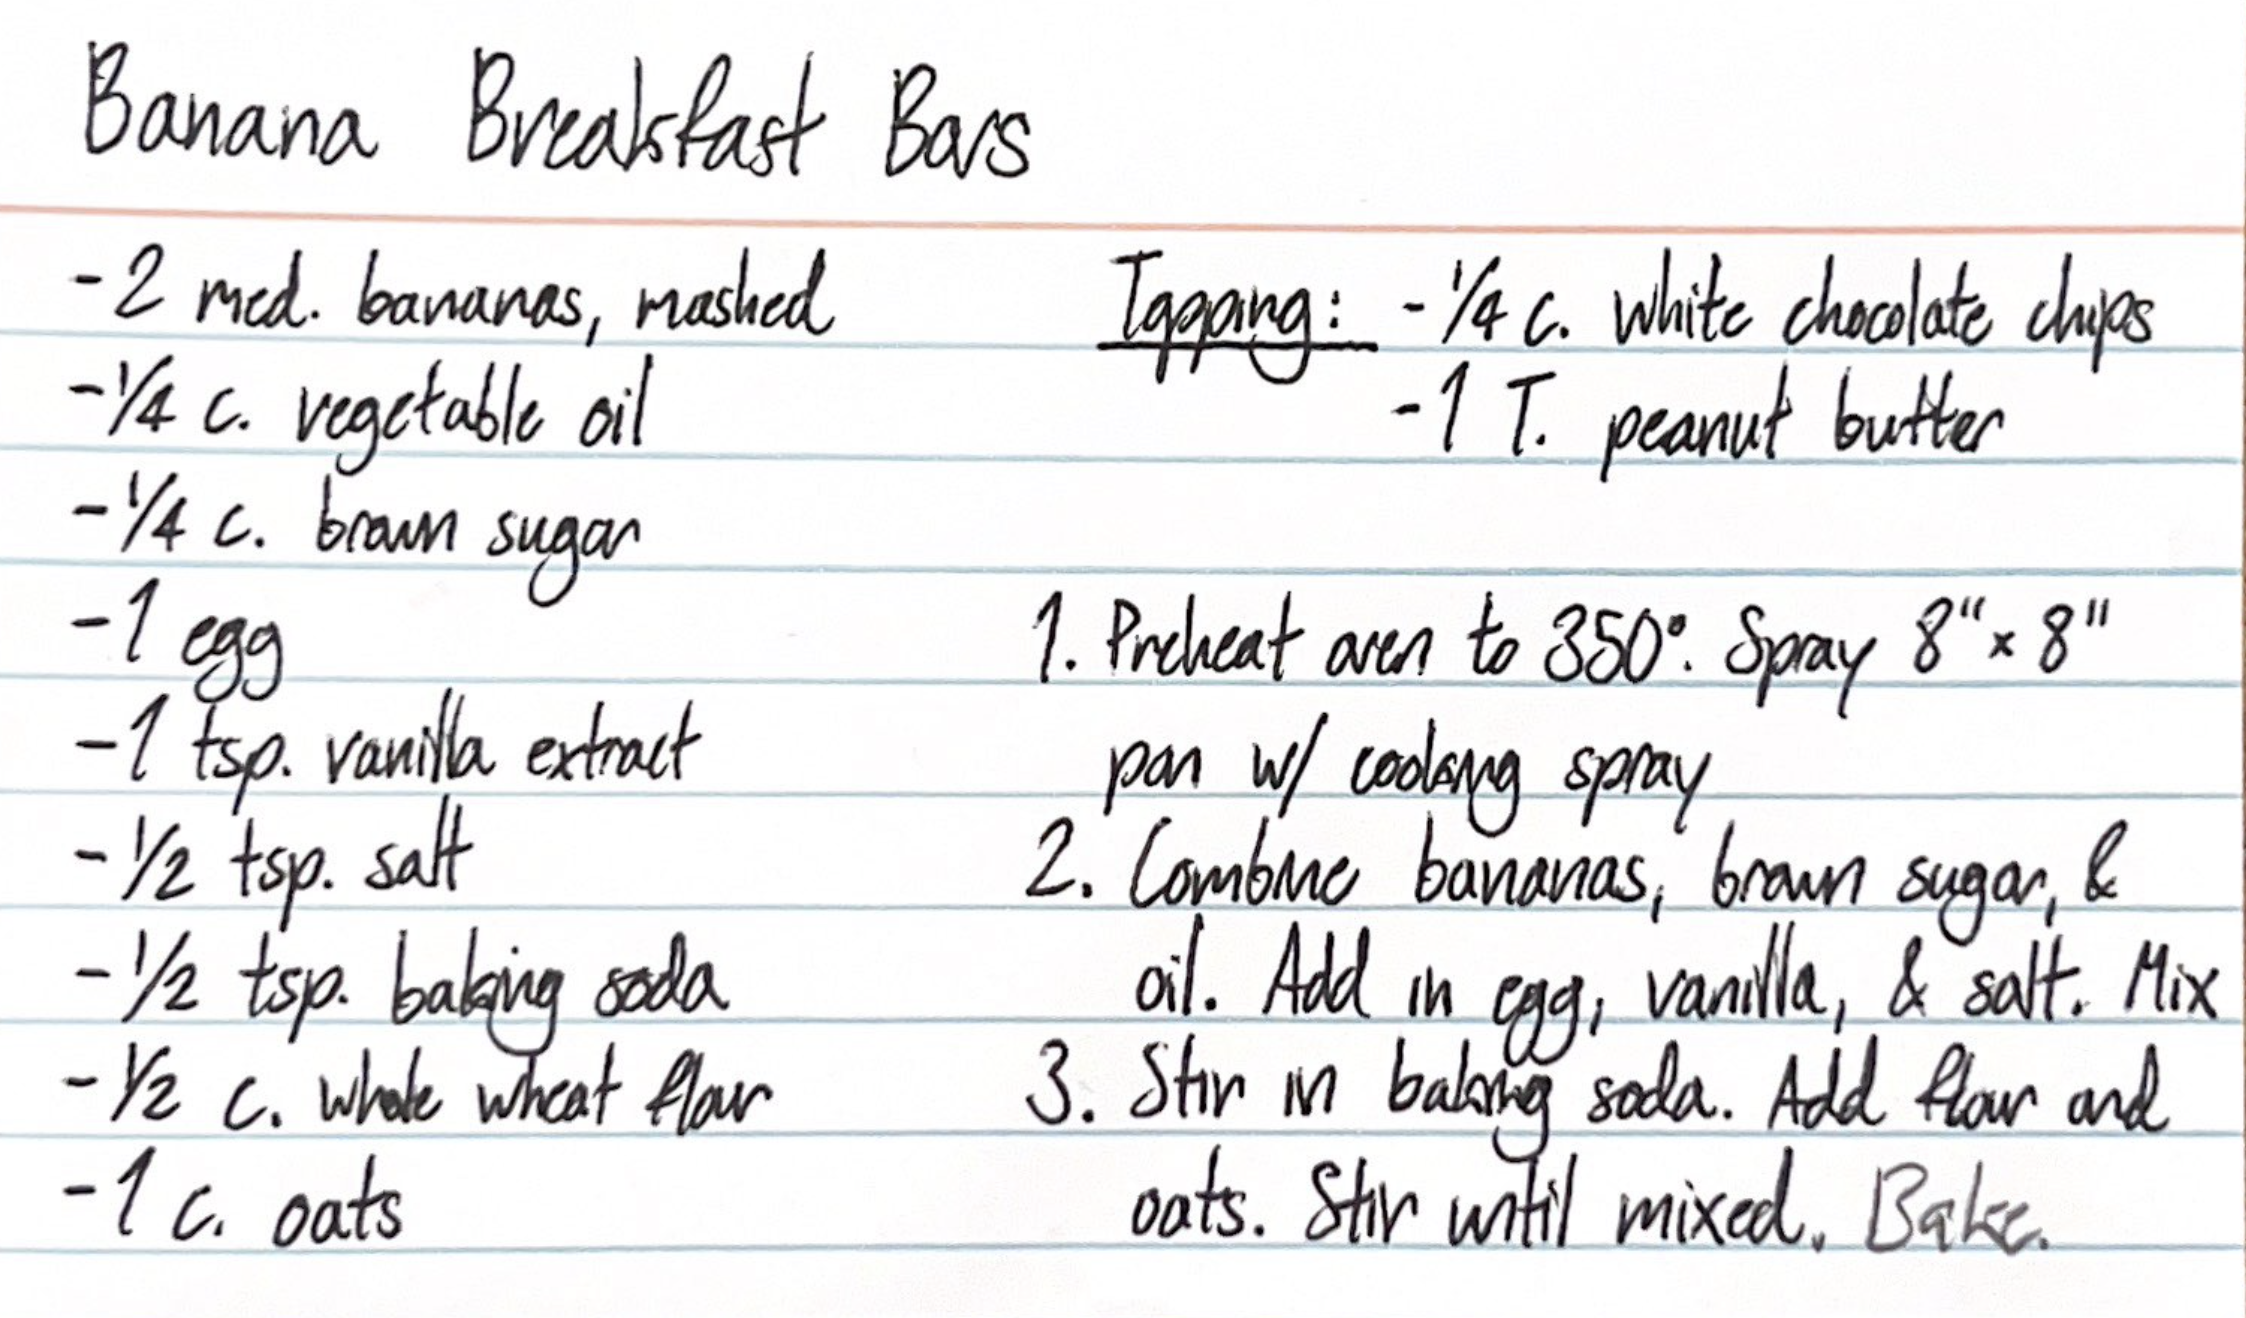 Banana Breakfast Bars
-2 med. bananas, mashed
-1/4 c. vegetable oil
-1/4 c. brown sugar
-1 egg
-1 tsp. vanilla extract
-1/2 tsp. salt
-1/2 tsp. baking soda
-1/2 c. whole wheat flour
-1 c. oats
Topping: -1/4 c. white chocolate chips
-1 T. peanut butter
1. Preheat oven to 350°. Spray 8" x 8"
pan w/ cooking spray
2. Combine bananas, brown sugar, &
oil. Add in egg, vanilla, & salt. Mix
3. Stir in baking soda. Add flour and
oats. Stir until mixed. Bake.